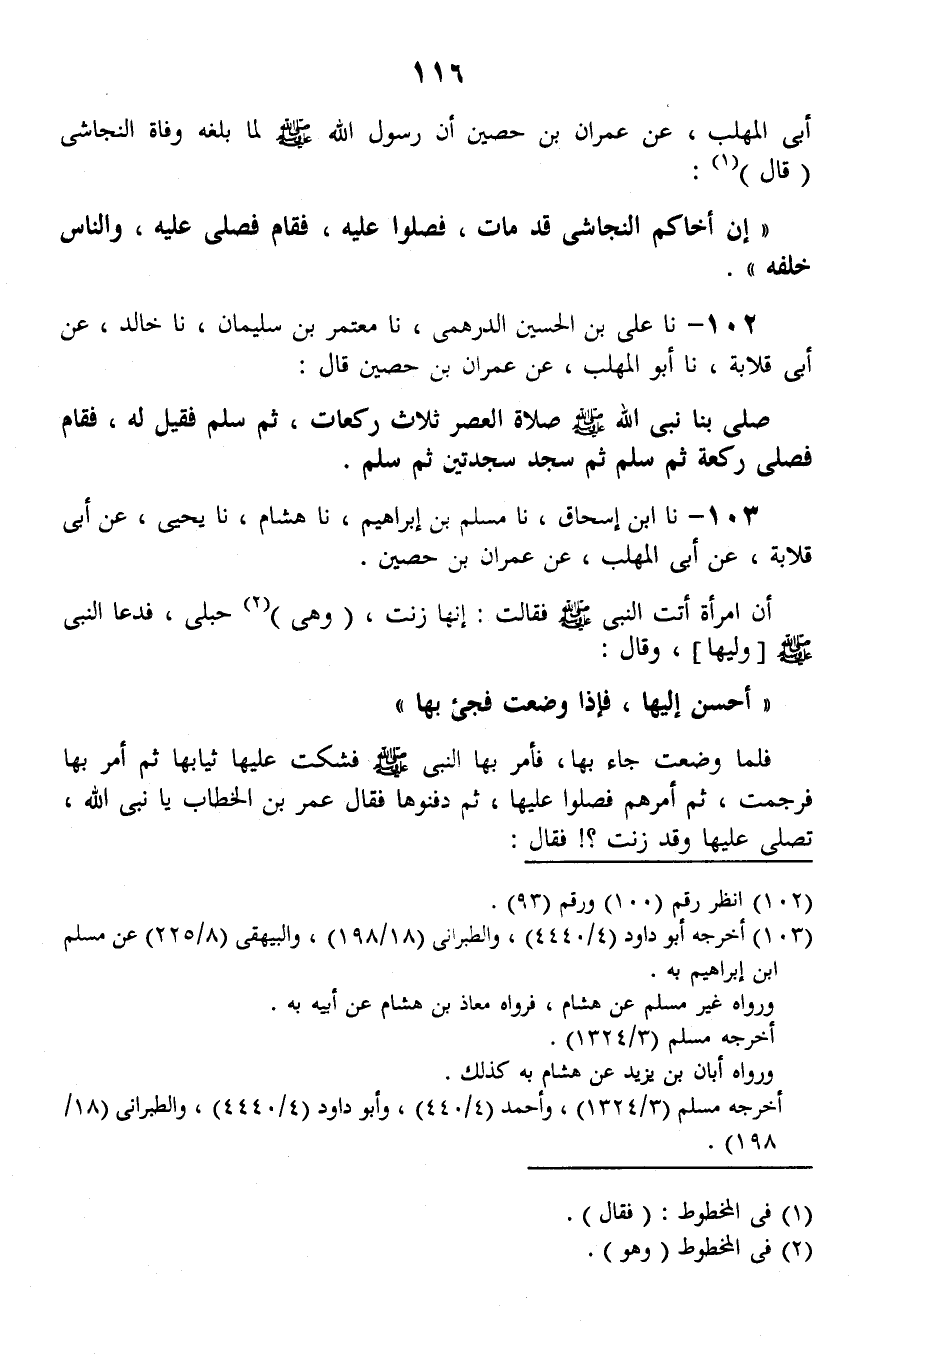 ١١٦
أبى المهلب ، عن عمران بن حصين أن رسول الله ﷺ لما بلغه وفاة النجاشى
( قال )(١) :
« إن أخاكم النجاشى قد مات ، فصلوا عليه ، فقام فصلى عليه ، والناس
خلفه » .
١٠٢- نا على بن الحسين الدرهمى ، نا معتمر بن سليمان ، نا خالد ، عن
أبى قلابة ، نا أبو المهلب ، عن عمران بن حصين قال :
صلى بنا نبى الله ﷺ صلاة العصر ثلاث ركعات ، ثم سلم فقيل له ، فقام
فصلى ركعة ثم سلم ثم سجد سجدتين ثم سلم .
١٠٣- نا ابن إسحاق ، نا مسلم بن إبراهيم ، نا هشام ، نا يحيى ، عن أبى
قلابة ، عن أبى المهلب ، عن عمران بن حصين .
أن امرأة أتت النبى ﷺ فقالت : إنها زنت ، ( وهى )(٢) حبلى ، فدعا النبى
ﷺ [ وليها ] ، وقال :
« أحسن إليها ، فإذا وضعت فجئ بها »
فلما وضعت جاء بها، فأمر بها النبى ﷺ فشكت عليها ثيابها ثم أمر بها
فرجمت ، ثم أمرهم فصلوا عليها ، ثم دفنوها فقال عمر بن الخطاب يا نبى الله ،
تصلى عليها وقد زنت ؟! فقال :
(١٠٢) انظر رقم (١٠٠) ورقم (٩٣) .
(١٠٣) أخرجه أبو داود (٤/٤٤٤٠) ، والطبرانى (١٩٨/١٨) ، والبيهقى (٢٢٥/٨) عن مسلم
ابن إبراهيم به .
ورواه غير مسلم عن هشام ، فرواه معاذ بن هشام عن أبيه به .
أخرجه مسلم (١٣٢٤/٣) .
ورواه أبان بن يزيد عن هشام به كذلك .
أخرجه مسلم (١٣٢٤/٣) ، وأحمد (٤٤٠/٤) ، وأبو داود (٤/٤٤٤٠) ، والطبرانى (١٨/
١٩٨) .
(١) فى المخطوط : ( فقال ) .
(٢) فى المخطوط ( وهو ) .